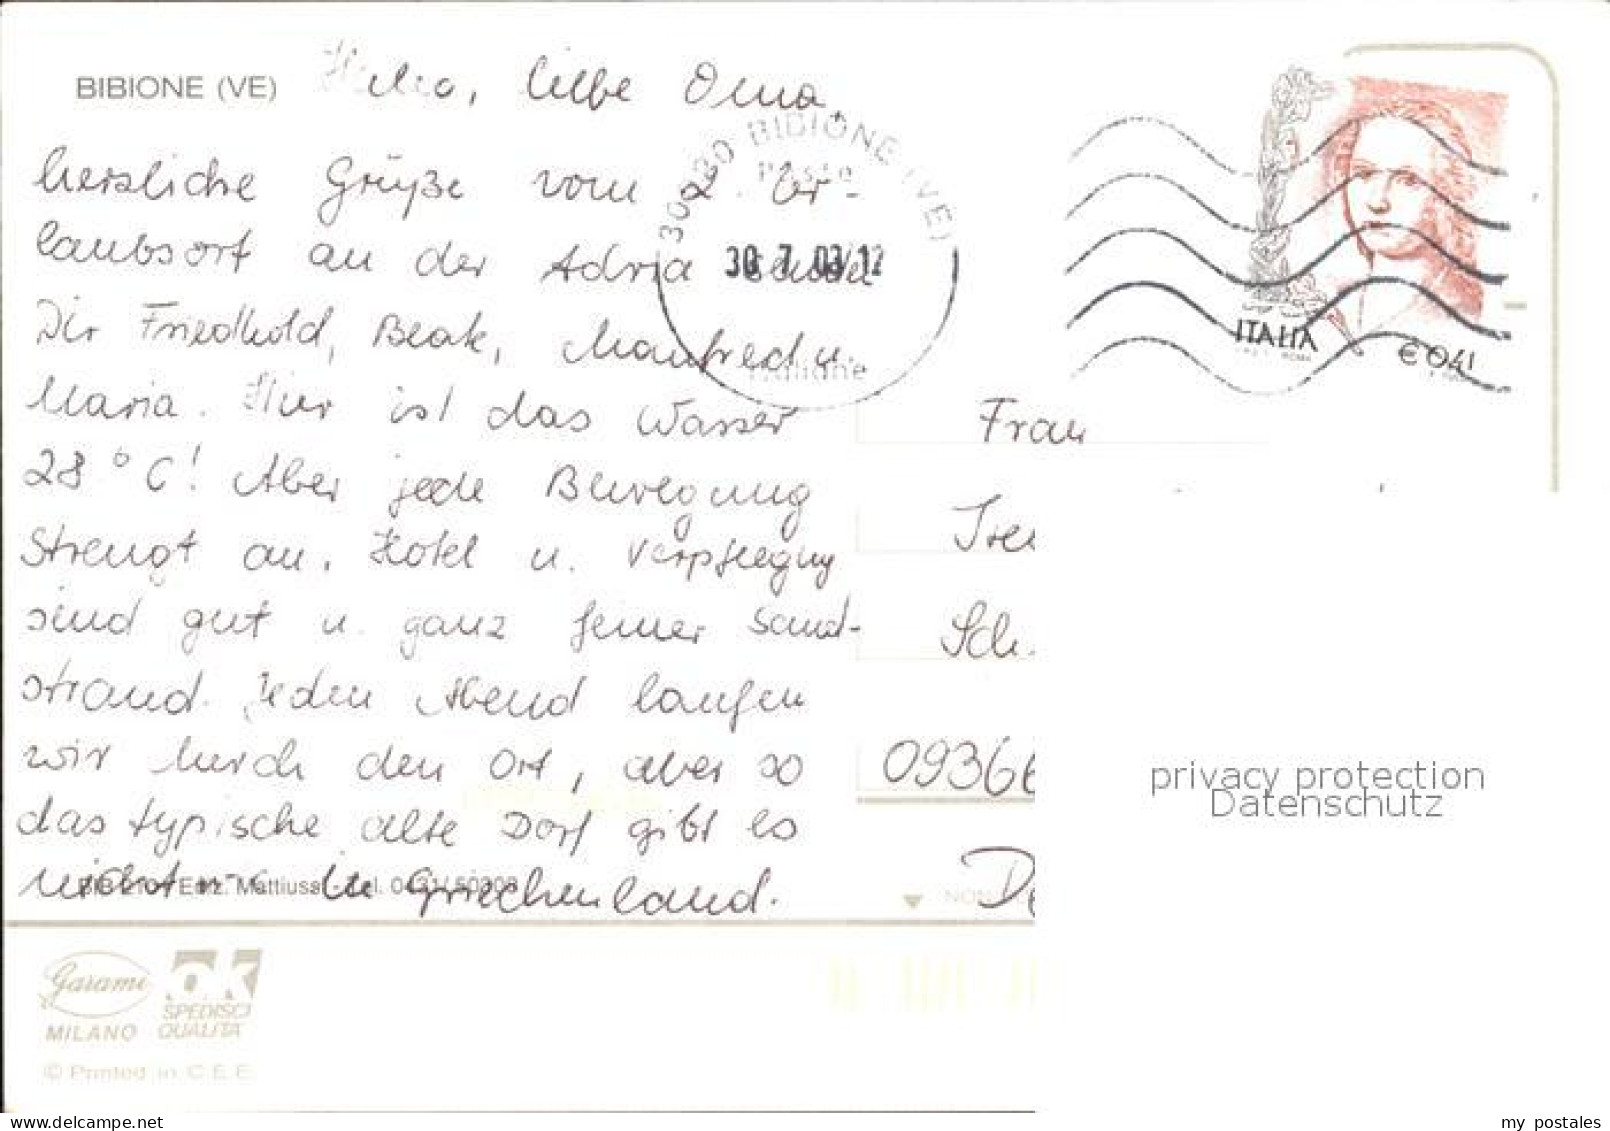 BIBIONE (VE)
Hallo, liebe Oma,
herzliche Grüße vom 2. Ur-
laubsort an der Adria senden
Dir Friedhold, Beate, Manfred u.
Maria. Hier ist das Wasser
28 °C! Aber jede Bewegung
strengt an. Hotel u. Verpflegung
sind gut u. ganz feiner Sand-
strand. Jeden Abend laufen
wir durch den Ort, aber so
das typische alte Dorf gibt es
nicht wie in Griechenland.
30030 BIBIONE (VE)
Poste
30 7 03/12
Italiane
ITALIA
ROMA
€ 0,41
Frau
Ire
Sch
09366
De
Ediz. Mattiussi - Tel. 0431/50303
NON
Garami
MILANO
OK
SPEDISCI
QUALITA'
© Printed in C.E.E.
privacy protection
Datenschutz
www.delcampe.net
my_postales